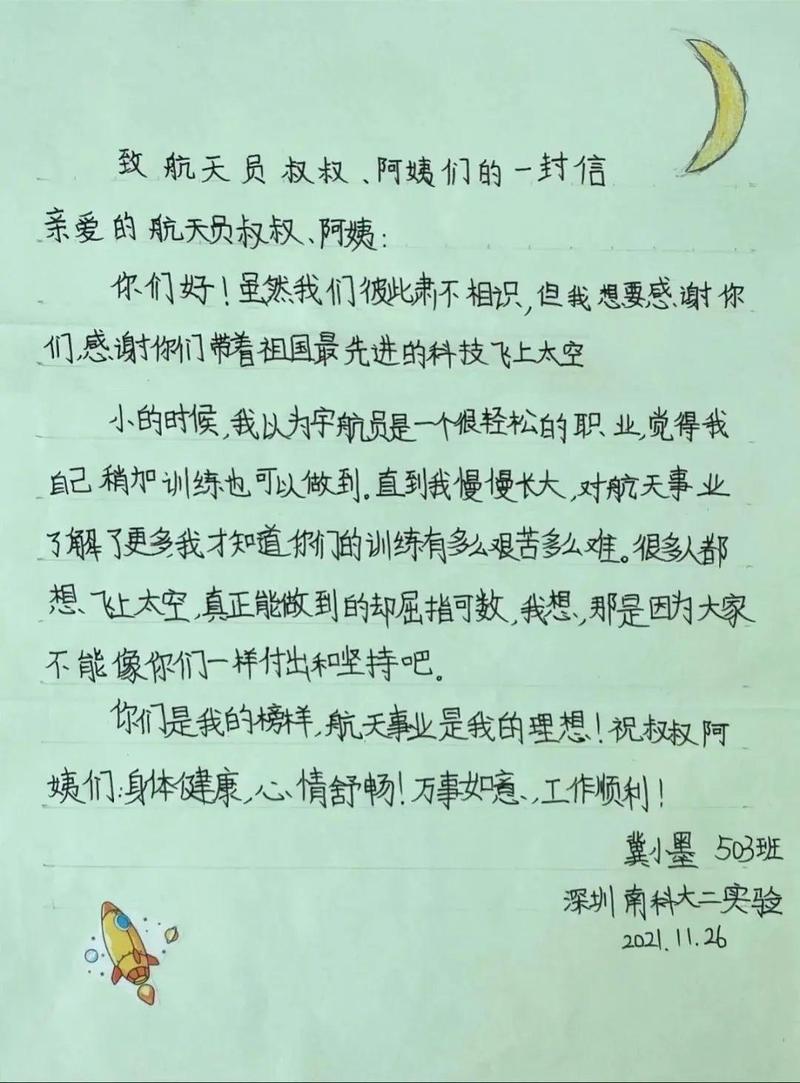 致航天员叔叔、阿姨们的一封信
亲爱的航天员叔叔、阿姨:
你们好!虽然我们彼此肃不相识,但我想要感谢你
们,感谢你们带着祖国最先进的科技飞上太空
小的时候,我以为宇航员是一个很轻松的职业,觉得我
自己稍加训练也可以做到。直到我慢慢长大,对航天事业
了解了更多,我才知道你们的训练有多么艰苦多么难。很多人都
想飞上太空,真正能做到的却屈指可数,我想,那是因为大家
不能像你们一样付出和坚持吧。
你们是我的榜样,航天事业是我的理想!祝叔叔阿
姨们:身体健康,心情舒畅!万事如意,工作顺利!
冀小墨 503班
深圳南科大二实验
2021.11.26